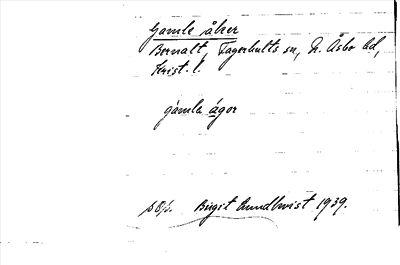 Gamle åker
Bernalt, Fagerhults sn, N. Åsbo hd,
Krist. l.
gamla ågor
Birgit Lundkvist 1939.